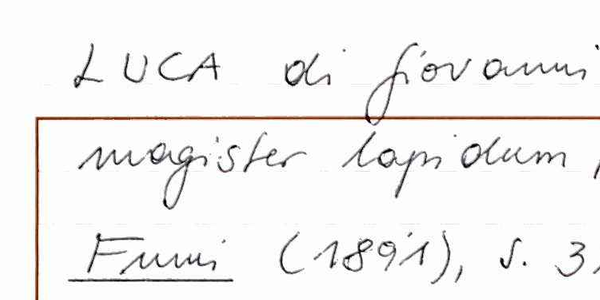 LUCA di Giovanni
magister lapidum
Fumi (1891), S. 3